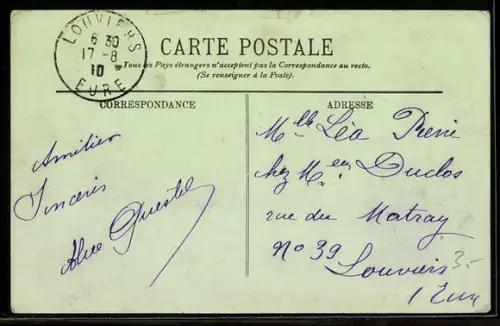 LOUVIERS
6 30
17 - 8
10
EURE
CARTE POSTALE
Tous les Pays étrangers n'acceptent pas la Correspondance au recto.
(Se renseigner à la Poste).
CORRESPONDANCE
Amitiés
Sincères
Alice
ADRESSE
Mlle Léa
chez Mr Duclos
rue du Matray
No 39
Louviers
Eure
3-